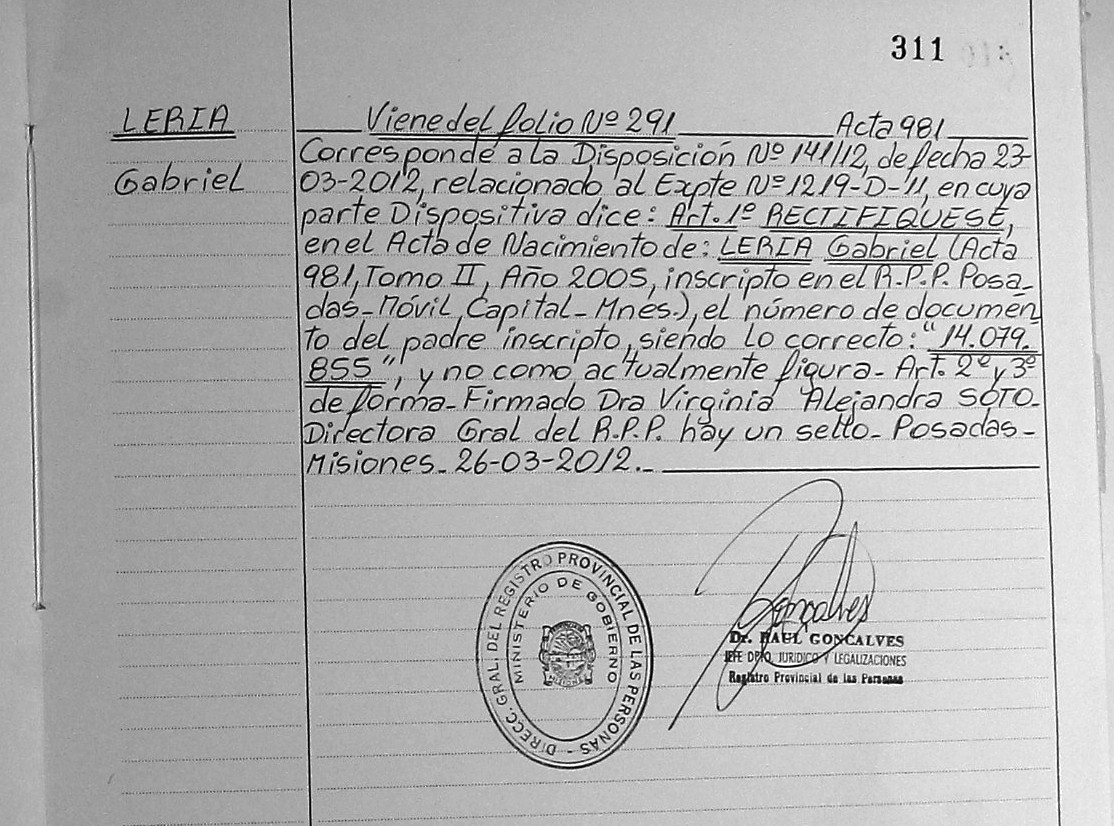 311
LERIA
Gabriel
Viene del folio Nº 291 Acta 981
Corresponde a la Disposición Nº 141/12, de fecha 23-
03-2012, relacionado al Expte Nº 1219-D-11, en cuya
parte Dispositiva dice: Art. 1º RECTIFIQUESE,
en el Acta de Nacimiento de: LERIA Gabriel (Acta
981, Tomo II, Año 2005, inscripto en el R.P.P. Posa_
das_Móvil, Capital_Mnes.), el número de documen
to del padre inscripto, siendo lo correcto: "14.079.
855", y no como actualmente figura_ Art. 2º y 3º
de forma_Firmado Dra Virginia Alejandra SOTO_
Directora Gral del R.P.P. hay un sello_ Posadas_
Misiones_ 26-03-2012._
DIRECC. GRAL. DEL REGISTRO PROVINCIAL DE LAS PERSONAS -
MINISTERIO DE GOBIERNO
Goncalves
Dr. RAUL GONCALVES
JEFE DPTO. JURIDICO Y LEGALIZACIONES
Registro Provincial de las Personas